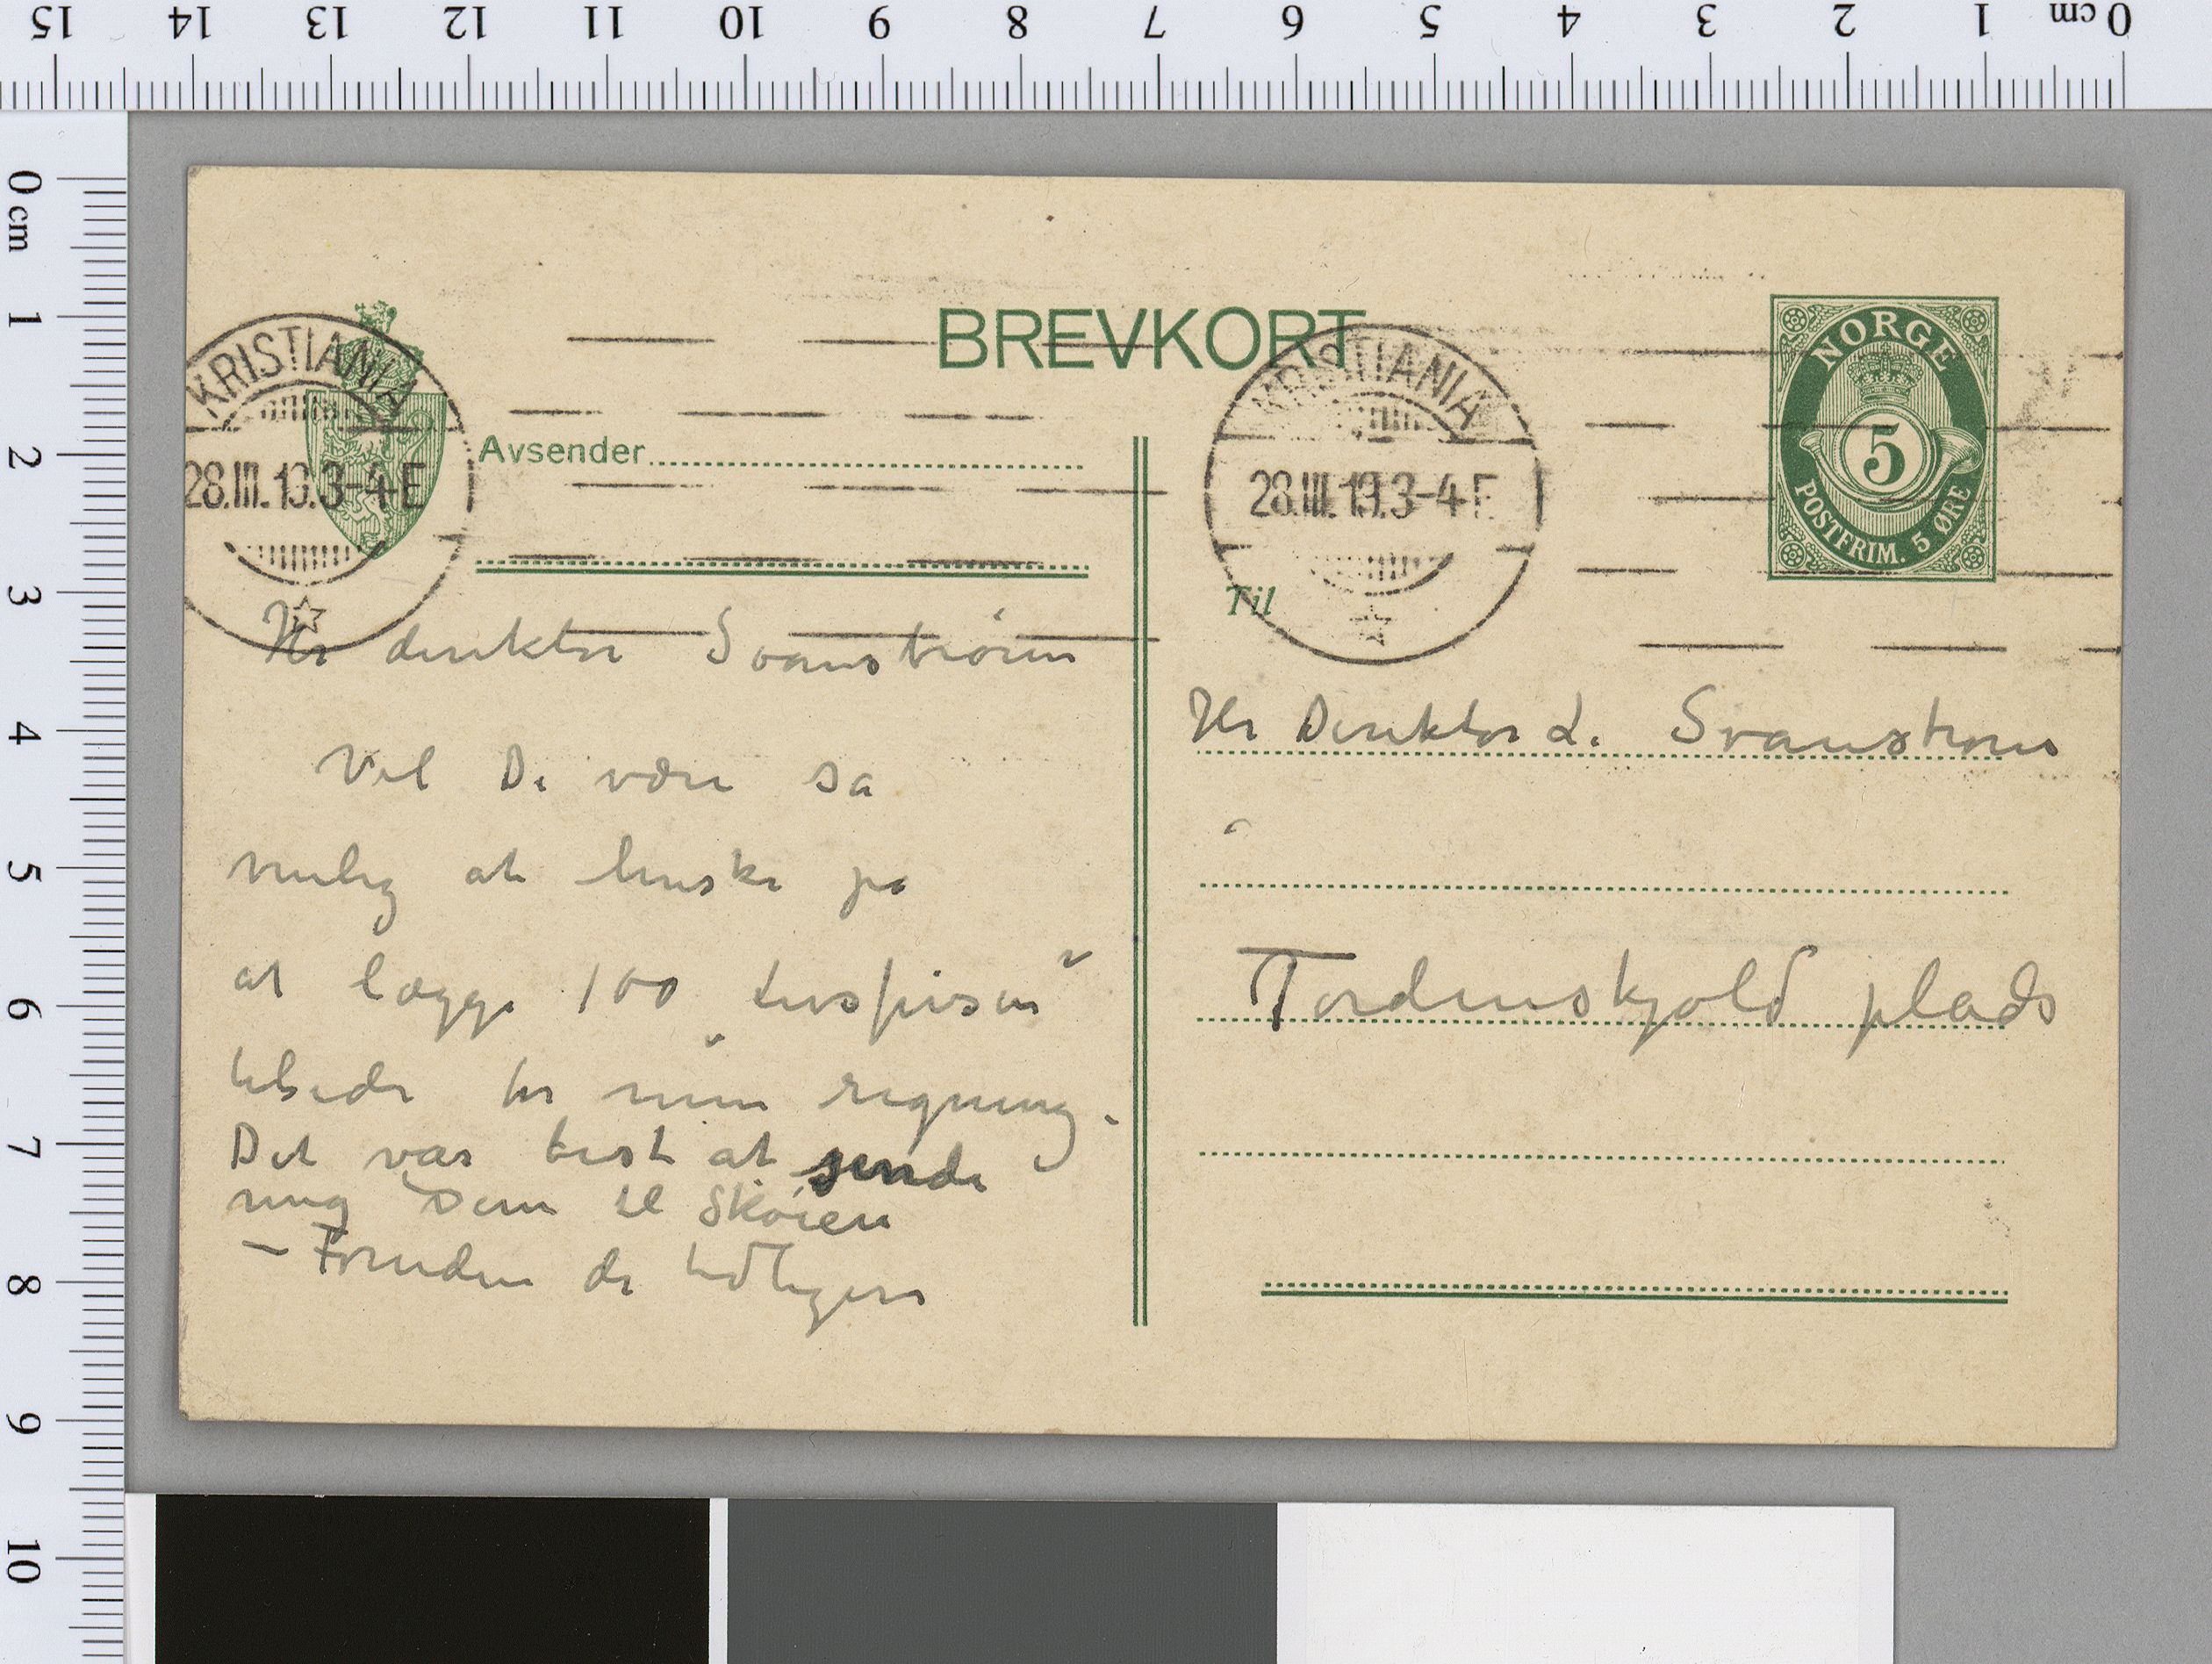 15 14 13 12 11 10 9 8 7 6 5 4 3 2 1 0 cm
0 cm
1
2
3
4
5
6
7
8
9
10
BREVKORT
KRISTIANIA
28.III.19.3-4 E
KRISTIANIA
28.III.19.3-4 E
NORGE
5
POSTFRIM. 5 ØRE
Avsender
Hr direktør Svanstrøm
Vil De være så
venlig at huske på
at lægge 100 „Livsfrisen"
tilside for min regning.
Det var best at sende
mig dem til Skøien
– Foruden de tidligere
Til
Hr Direktør L. Svanstrøm
Tordenskjold plads